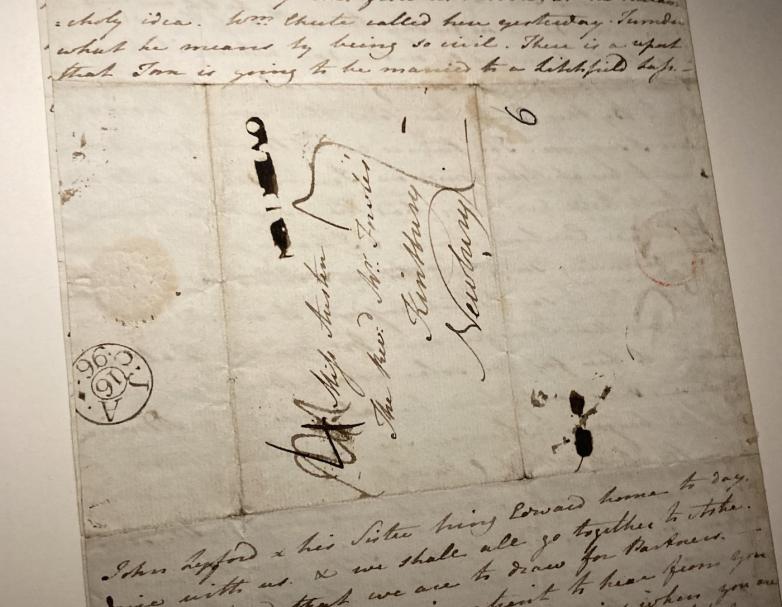 =choly idea. Wm. Chute called here yesterday. I wonder
what he means by being so civil. There is a report
that Tom is going to be married to a Litchfield Lass.-
6
Miss Austen
The Revd. Mr. Fowle's
Kintbury
Newbury
JA
16
96
John Lyford & his Sister bring Edward home to day,
dine with us, & we shall all go together to Ashe.
that we are to draw for Partners.
to hear from you
when you are